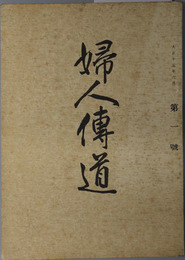 第一號
婦人傳道